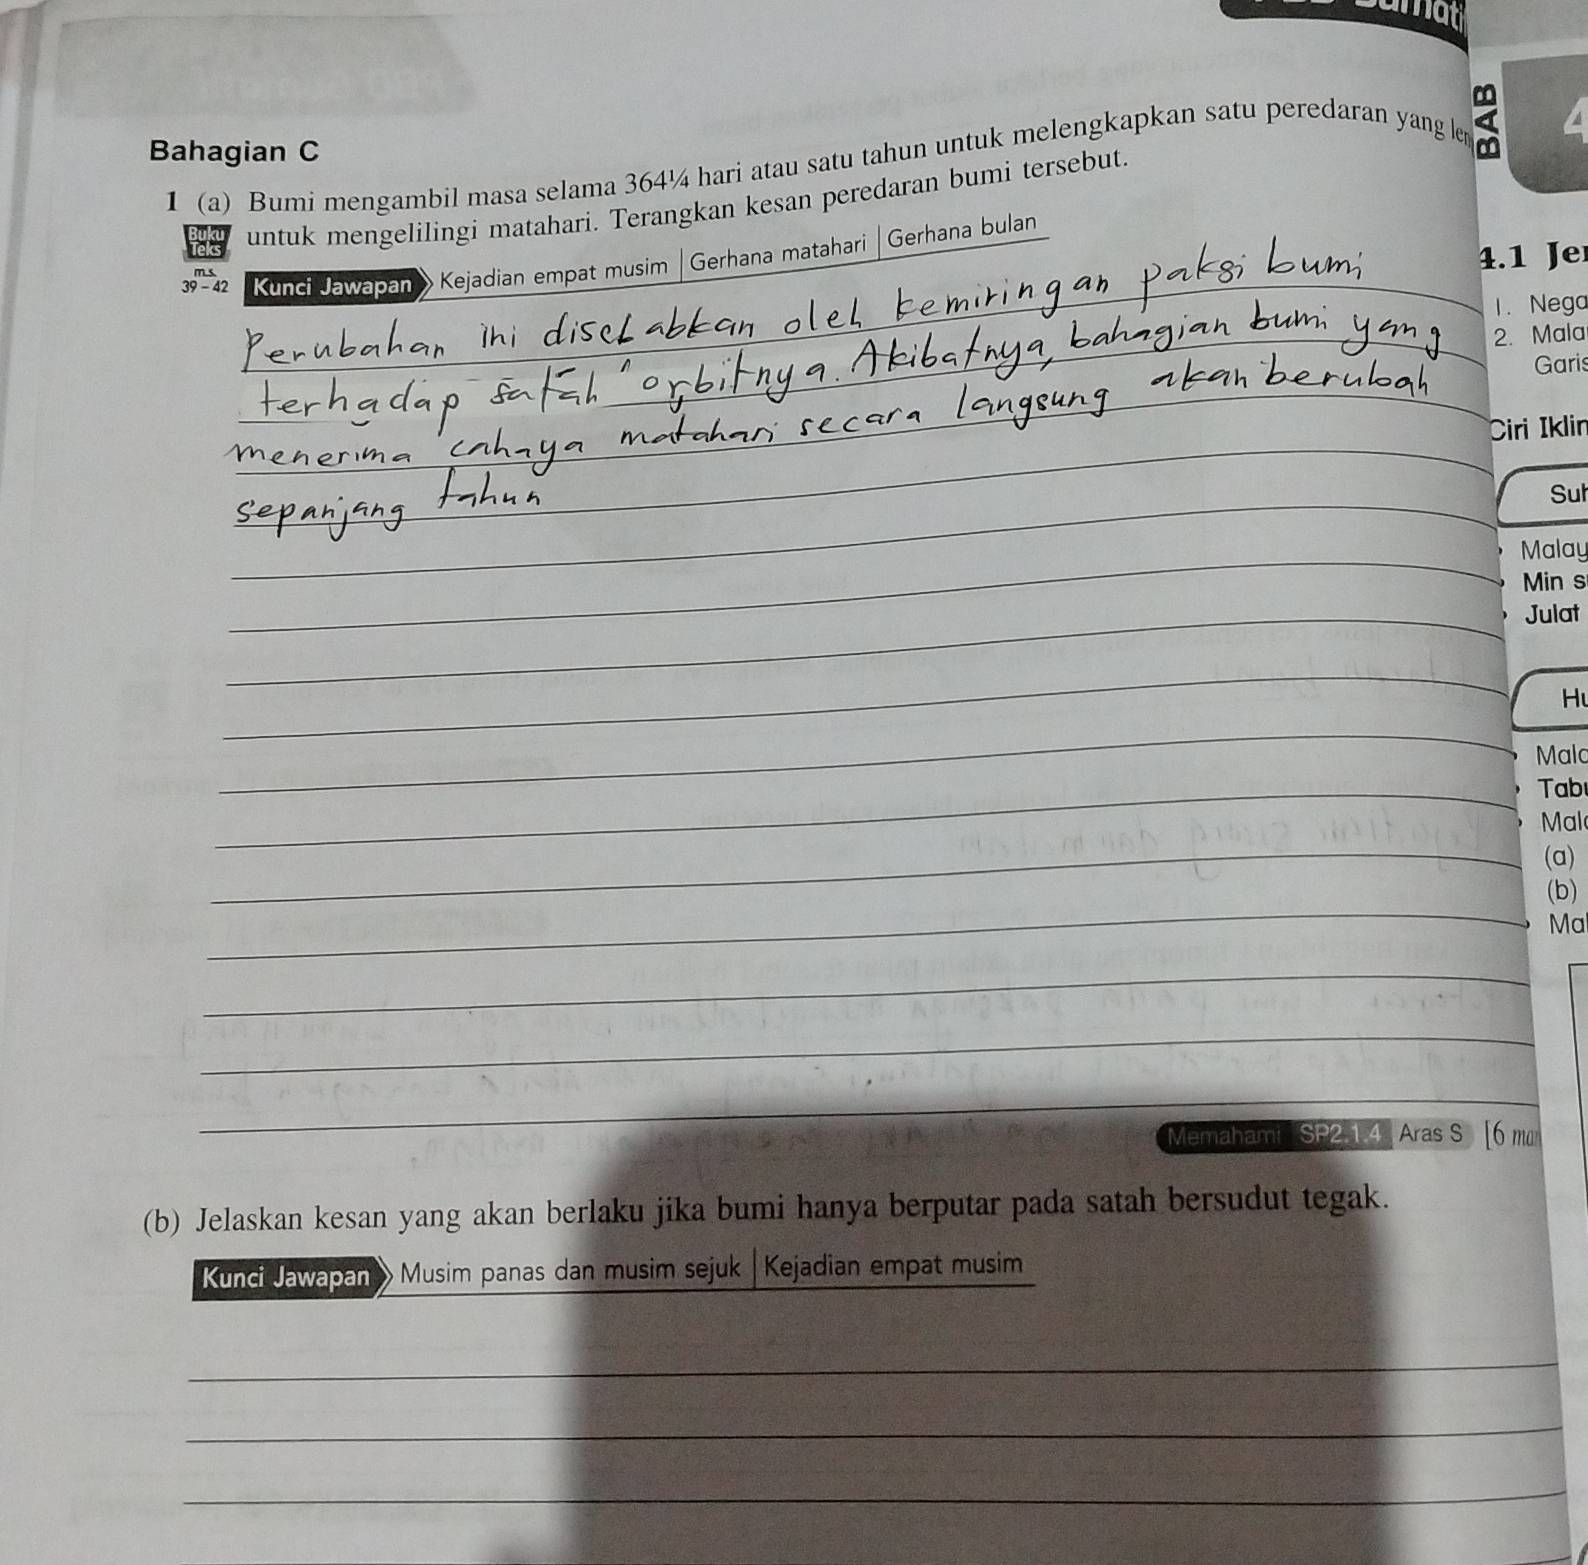 BAB 4
Bahagian C
1 (a) Bumi mengambil masa selama 364¼ hari atau satu tahun untuk melengkapkan satu peredaran yang len
Buku Teks
untuk mengelilingi matahari. Terangkan kesan peredaran bumi tersebut.
m.s. 39 – 42
Kunci Jawapan Kejadian empat musim | Gerhana matahari | Gerhana bulan
Perubahan ini disebabkan oleh kemiringan paksi bumi
terhadap satah orbitnya. Akibatnya, bahagian bumi yang
menerima cahaya matahari secara langsung akan berubah
sepanjang tahun
Memahami SP2.1.4 Aras S [6 mar
(b) Jelaskan kesan yang akan berlaku jika bumi hanya berputar pada satah bersudut tegak.
Kunci Jawapan Musim panas dan musim sejuk | Kejadian empat musim
4.1 Jer
1. Nega
2. Mala
Garis
Ciri Iklim
Suh
Malay
Min s
Julat
Hu
Mala
Tabu
Mala
(a)
(b)
Mal